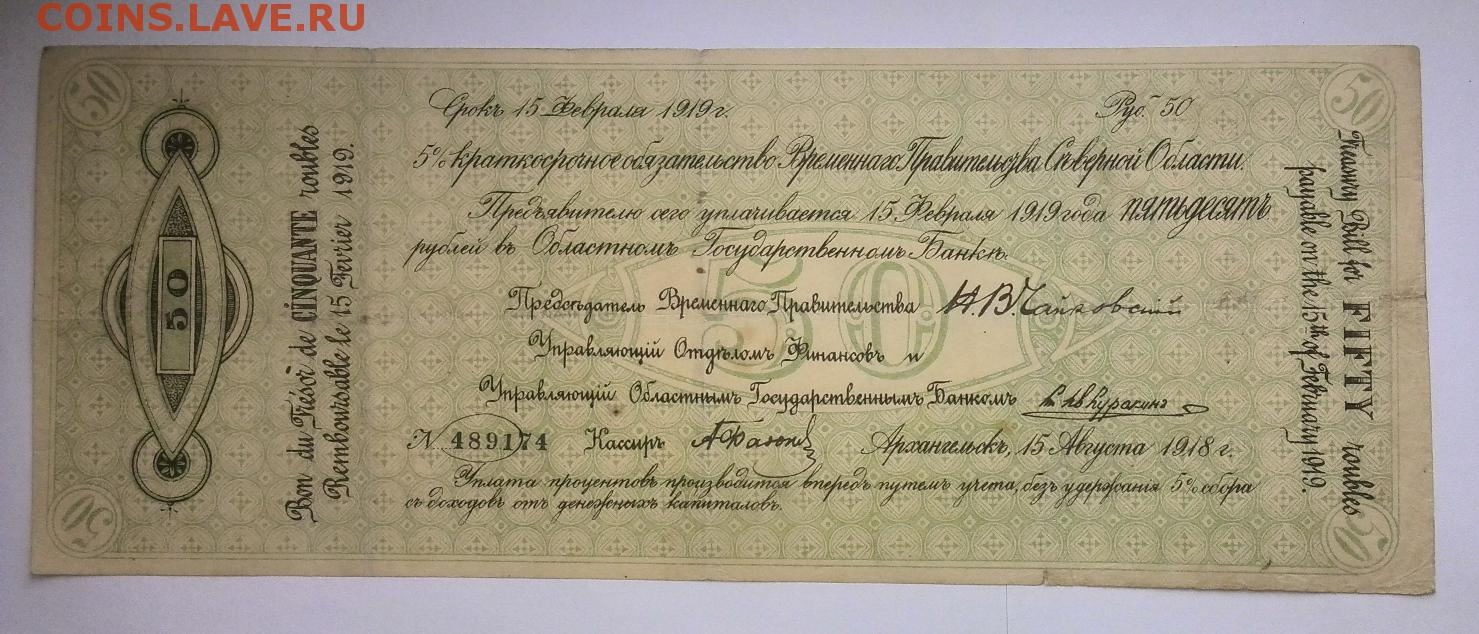 COINS.LAVE.RU
50
50
Срокъ 15 Февраля 1919 г.
Руб. 50
5% краткосрочное обязательство Временнаго Правительства Сѣверной Области.
Предъявителю сего уплачивается 15 Февраля 1919 года пятьдесятъ
рублей въ Областномъ Государственномъ Банкѣ.
50
Предсѣдатель Временнаго Правительства Н.В.Чайковский
Управляющій Отдѣломъ Финансовъ и
Управляющій Областнымъ Государственнымъ Банкомъ
№ 489174 Кассиръ
Архангельскъ, 15 Августа 1918 г.
Уплата процентовъ производится впередъ путемъ учета, безъ удержанія 5% сбора
съ доходовъ отъ денежныхъ капиталовъ.
50
Bon du Trésor de CINQUANTE roubles
Remboursable le 15 Fevrier 1919.
Treasury Bill for FIFTY roubles
payable on the 15th of February 1919.
50
50